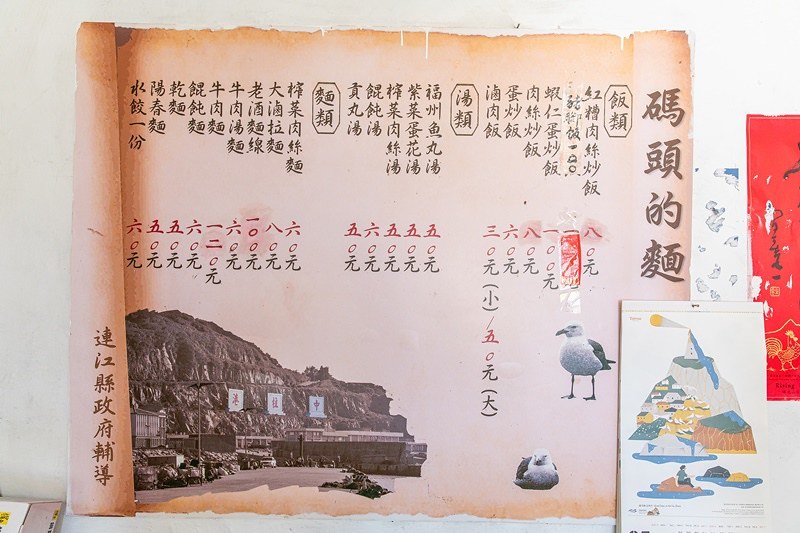 碼頭的麵
飯類
紅糟肉絲炒飯 八〇元
蝦仁蛋炒飯 一〇〇元
肉絲炒飯 八〇元
蛋炒飯 六〇元
滷肉飯 三〇元(小)/五〇元(大)
湯類
福州魚丸湯 五〇元
紫菜蛋花湯 五〇元
榨菜肉絲湯 五〇元
餛飩湯 六〇元
貢丸湯 五〇元
麵類
榨菜肉絲麵 六〇元
大滷拉麵 八〇元
老酒麵線 一〇〇元
牛肉湯麵 六〇元
牛肉麵 一二〇元
餛飩麵 六〇元
乾麵 五〇元
陽春麵 五〇元
水餃一份 六〇元
中柱港
連江縣政府輔導
Rising